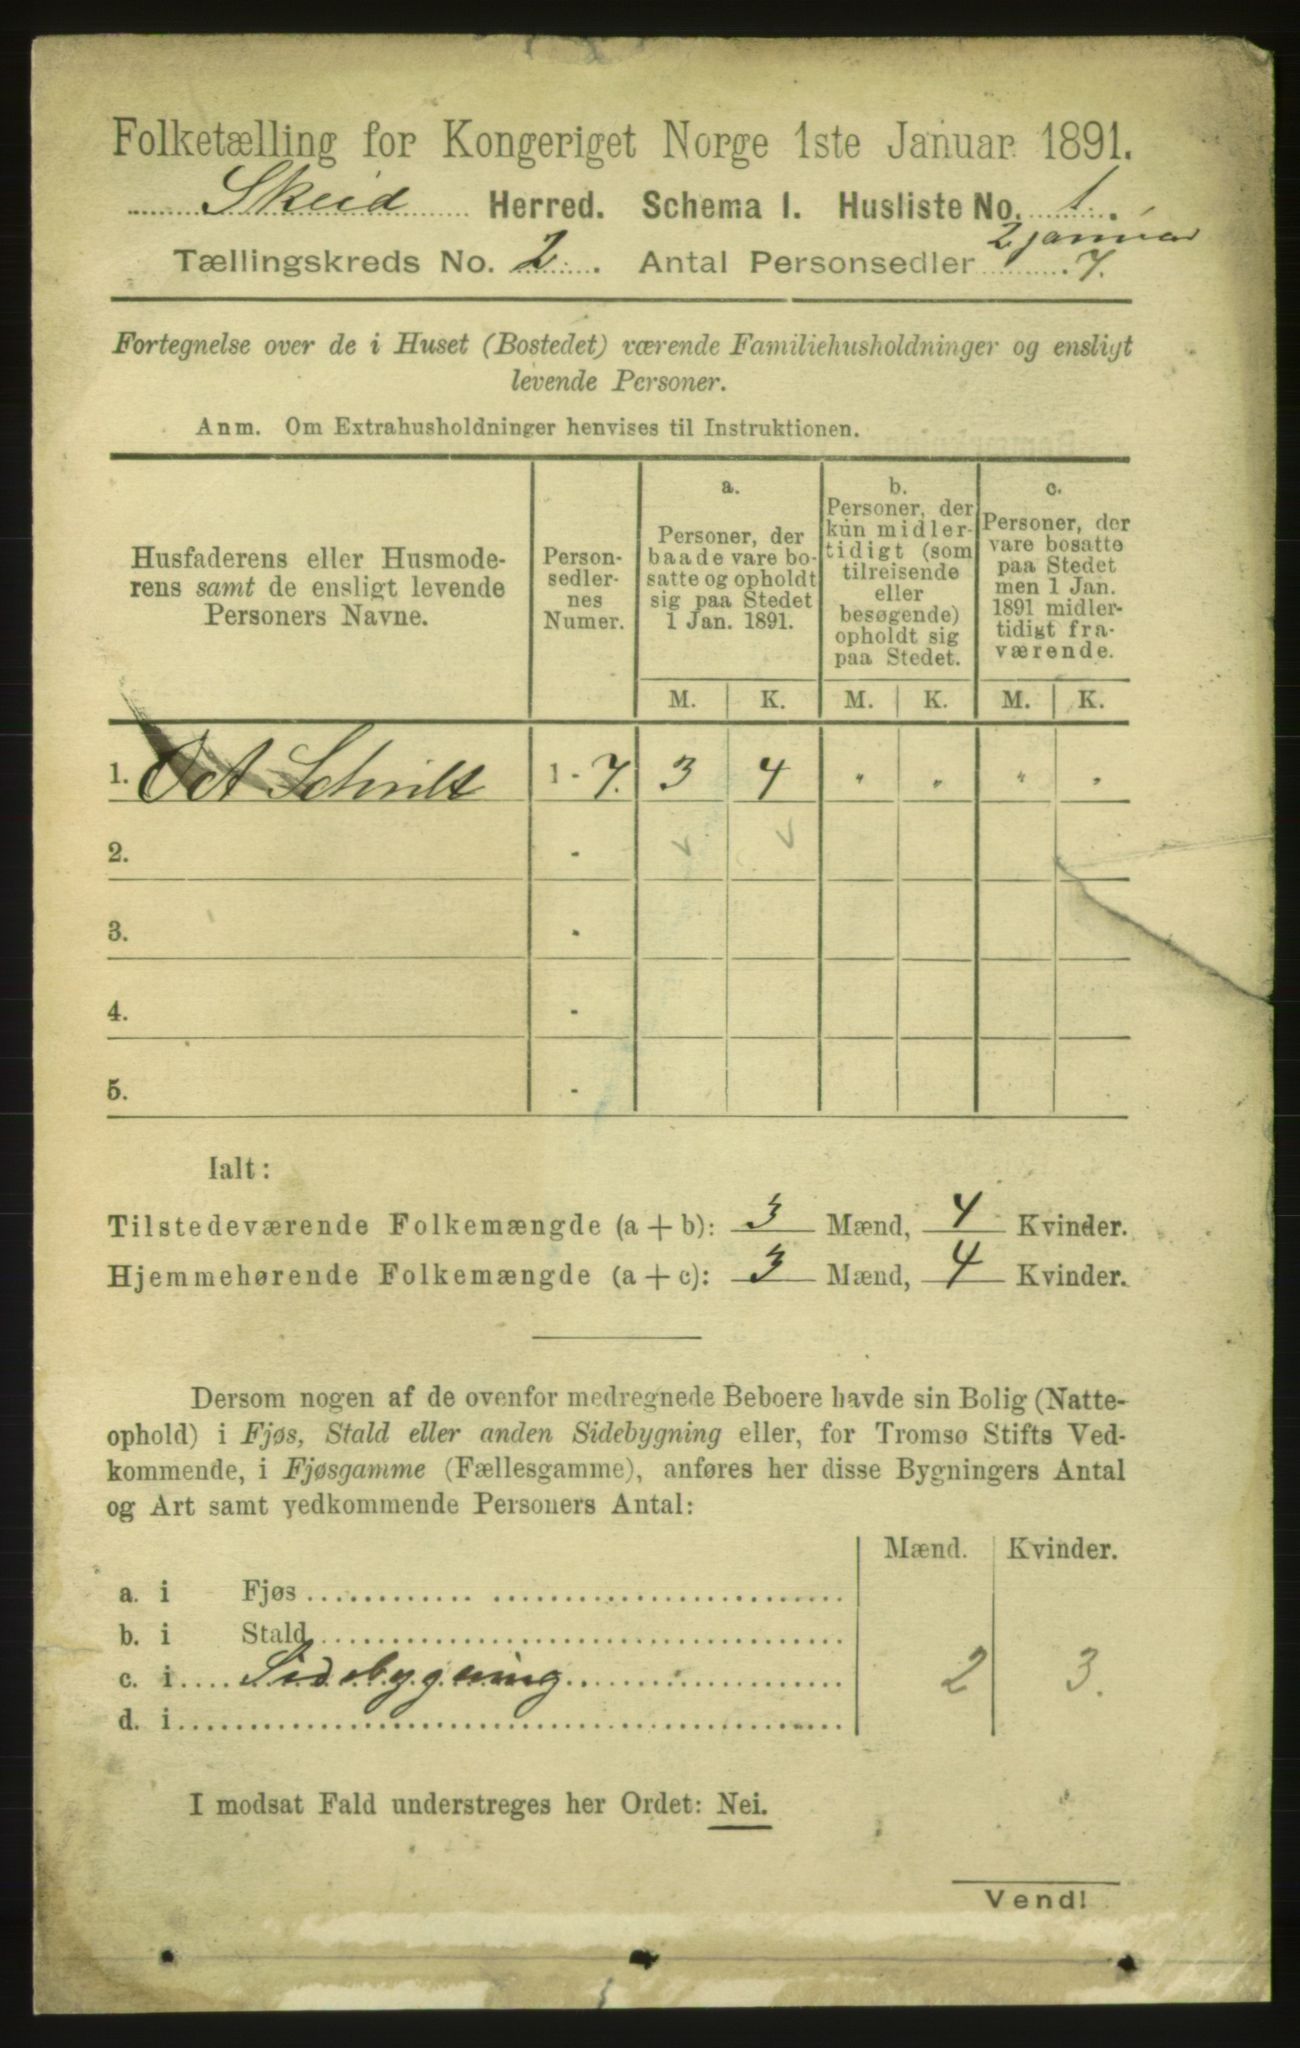 Folketælling for Kongeriget Norge 1ste Januar 1891.
Skeid Herred. Schema I. Husliste No. 1.
2 januar
Tællingskreds No. 2. Antal Personsedler 7.
Fortegnelse over de i Huset (Bostedet) værende Familiehusholdninger og ensligt
levende Personer.
Anm. Om Extrahusholdninger henvises til Instruktionen.
Husfaderens eller Husmode-
rens samt de ensligt levende
Personers Navne.
Person-
sedler-
nes
Numer.
a.
Personer, der
baade vare bo-
satte og opholdt
sig paa Stedet
1 Jan. 1891.
b.
Personer, der
kun midler-
tidigt (som
tilreisende
eller
besøgende)
opholdt sig
paa Stedet.
c.
Personer, der
vare bosatte
paa Stedet
men 1 Jan.
1891 midler-
tidigt fra-
værende.
M. K. M. K. M. K.
1. 1 - 7. 3 4 " " " "
2. -
3. -
4. -
5. -
Ialt:
Tilstedeværende Folkemængde (a + b): 3 Mænd, 4 Kvinder.
Hjemmehørende Folkemængde (a + c): 3 Mænd, 4 Kvinder.
Dersom nogen af de ovenfor medregnede Beboere havde sin Bolig (Natte-
ophold) i Fjøs, Stald eller anden Sidebygning eller, for Tromsø Stifts Ved-
kommende, i Fjøsgamme (Fællesgamme), anføres her disse Bygningers Antal
og Art samt vedkommende Personers Antal:
Mænd. Kvinder.
a. i Fjøs
b. i Stald
c. i Sidebygning 2 3.
d. i
I modsat Fald understreges her Ordet: Nei.
Vend!